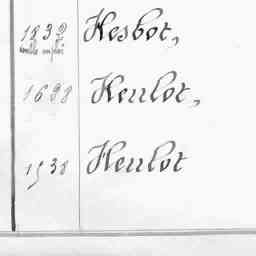 1832 Hesbot,
1698 Henlot,
1538 Henlot